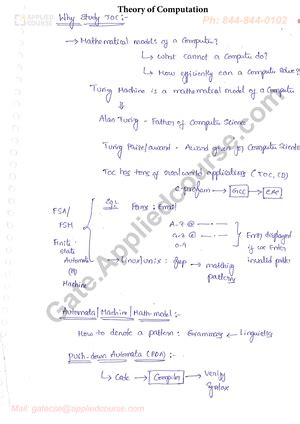 APPLIED COURSE
Theory of Computation
Ph: 844-844-0102
Why Study TOC:-
→ Mathematical models of a Computer?
↳ What cannot a Computer do?
↳ How efficiently can a Computer Solve?
Turing Machine is a mathematical model of a Computer
Alan Turing - Father of Computer Science
Turing Prize/award - Award given for Computer Science
Toc has tons of real world applications (TOC, CD)
C-program → GCC → EXE
FSA/
FSM
Finite
State
Automata
(or)
Machine
Form : Email
A-Z @
a-z @
0-9
Error displayed
if we Enter
invalid patterns
→ Linux/unix : grep → matching
patterns
Automata | Machine | Math-model :-
How to denote a pattern : Grammars ← Linguistics
Push-down Automata (PDA) :-
↳ Code → Compiler → Verify
Gate.Appliedcourse.com
Mail: gatecse@appliedcourse.com